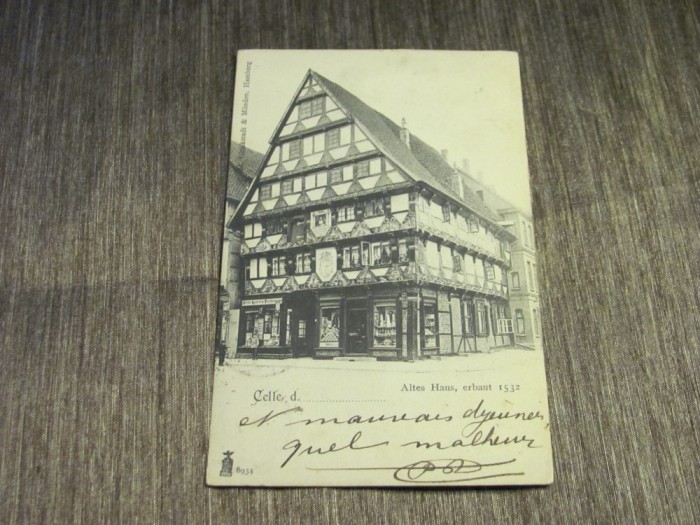 & Münden, Hamburg
Celle, d.
Altes Haus, erbaut 1532
mauvais dejeuner
quel malheur
8934